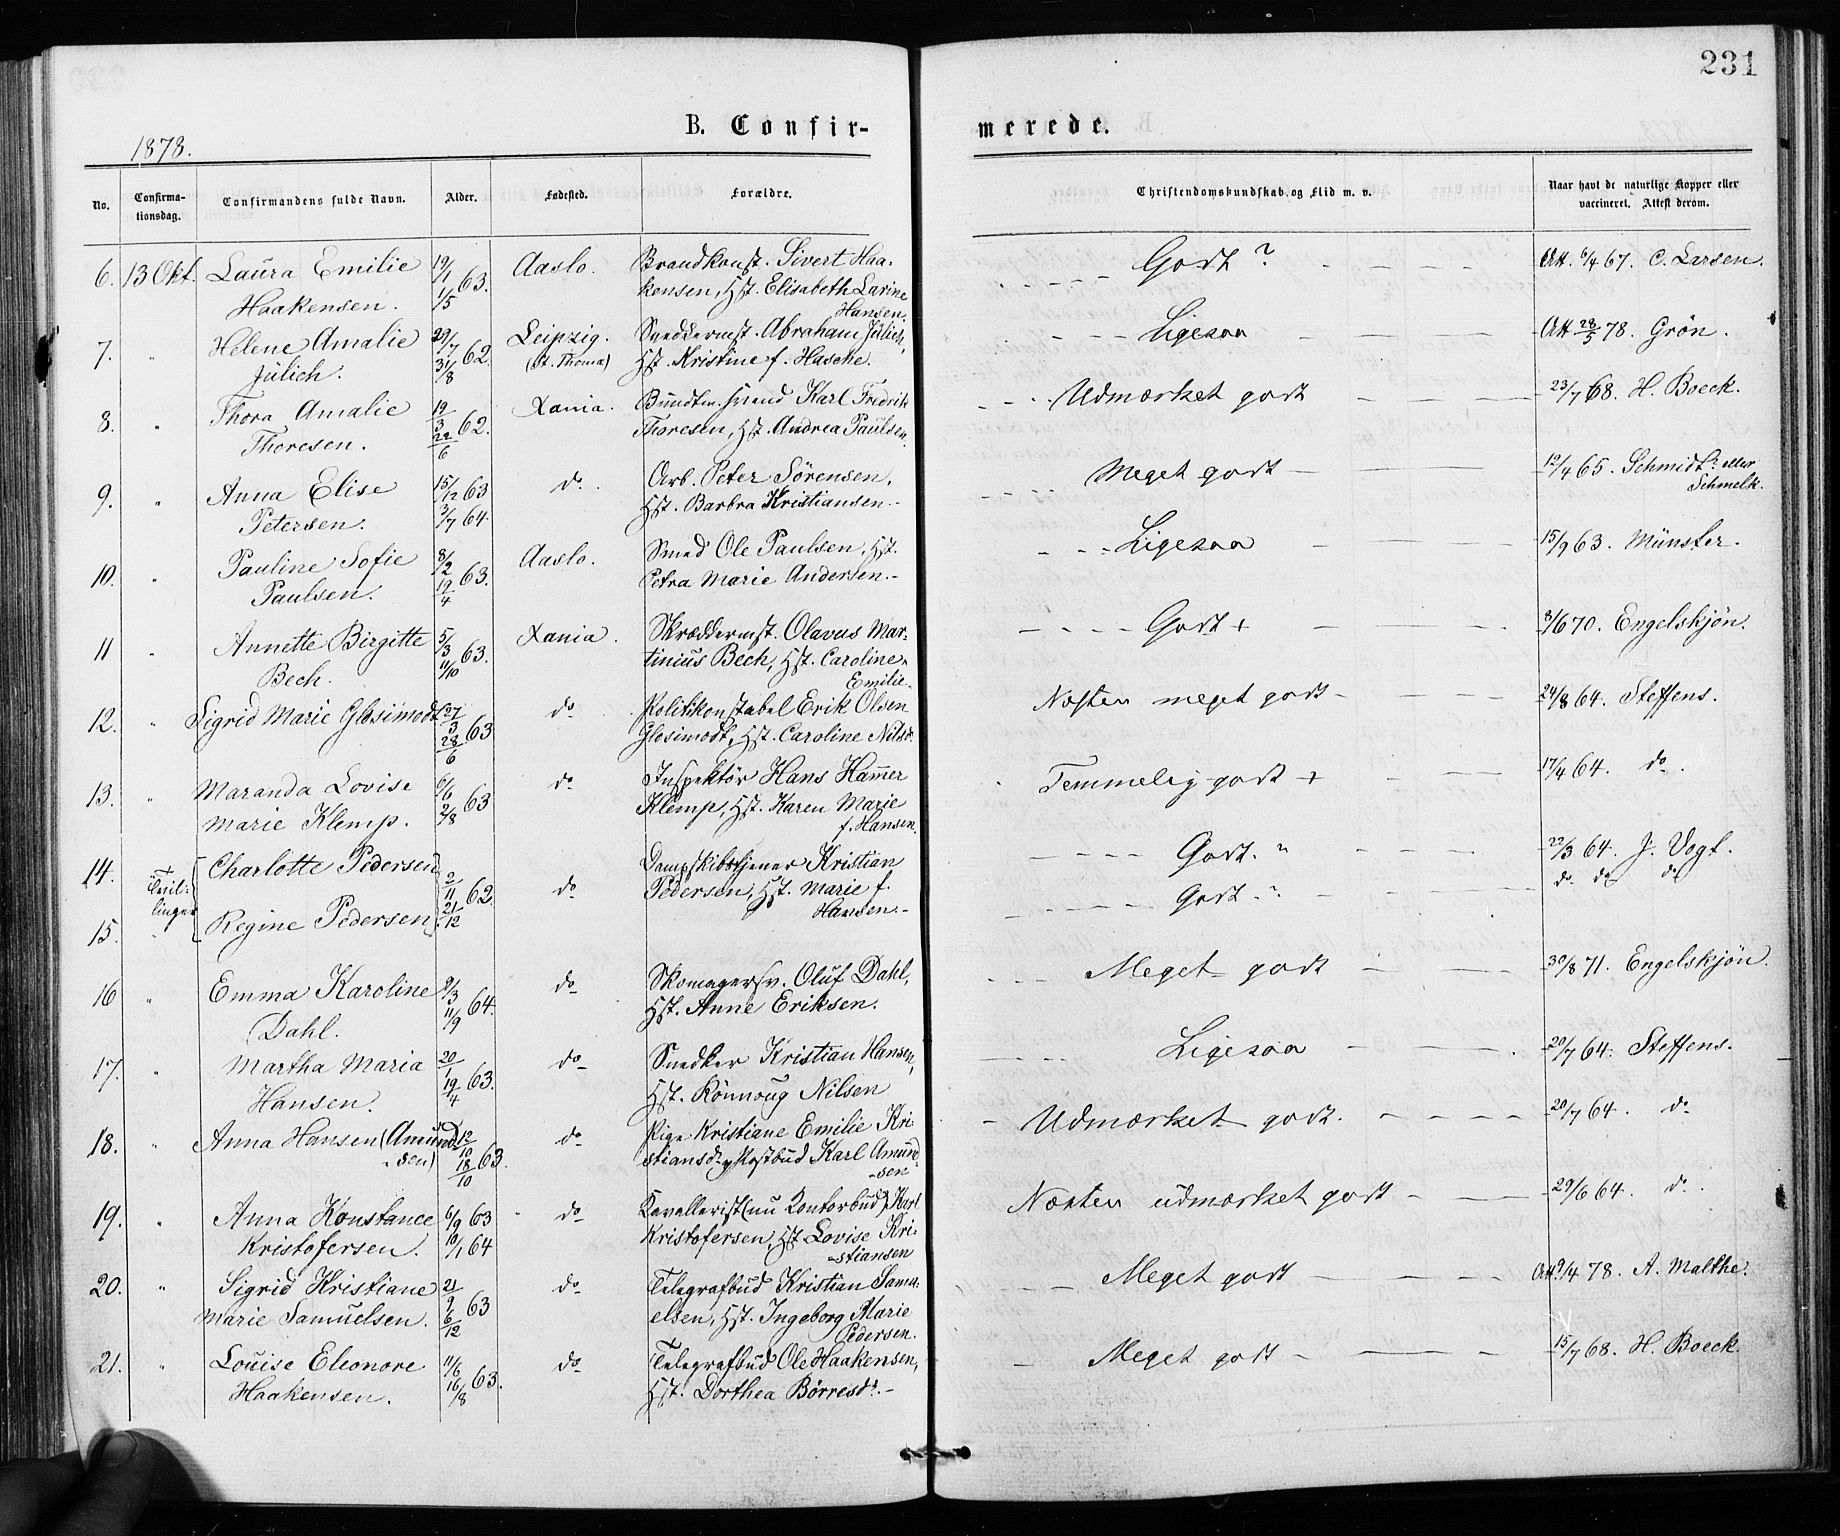 231
B. Confir-
merede.
1878.
No.
Confirma-
tionsdag.
Confirmandens fulde Navn.
Alder.
Fødested.
Forældre.
Christendomskundskab og Flid m. v.
Naar havt de naturlige Kopper eller
vaccineret. Attest derom.
6. 13 Okt. Laura Emilie 19/1 63. Aaslo. Brandkonst. Sivert Haa- Godt ? Att. 6/4 67. C. Larsen.
Haakensen. 1/5 kensen, Hst. Elisabeth Larine
Hansen.
7. " Helene Amalie 29/7 62. Leipzig. Snedkermst. Abraham Jülich, Ligesaa Att 28/5 78. Grøn.
Jülich. 31/8 (St. Thoma) Hst. Kristine f. Hasche.
8. " Thora Amalie 19/3 62. Xania. Bundtm. svend Karl Fredrik Udmærket godt 23/7 68. H. Boeck.
Thoresen. 22/6 Thoresen, Hst. Andrea Paulsen.
9. " Anna Elise 15/12 63 do. Arb. Peter Sörensen, Meget godt 12/4 65. Schmidt? eller
Petersen. 3/7 64. Hst. Barbra Kristiansen. Schmelk.
10. " Pauline Sofie 8/2 63. Aaslo. Smed Ole Paulsen, Hst. Ligesaa 15/9 63. Münster.
Paulsen. 19/4 Petra Marie Andersen.
11 " Annette Birgitte 5/3 63. Xania. Skræddermst. Olavus Mar- Godt + 8/6 70. Engelskjön.
Bech. 11/10 tinius Bech, Hst. Caroline
Emilie.
12. " Sigrid Marie Glosimodt 27/3 63 do Politikonstabel Erik Olsen Næsten meget godt 24/8 64. Steffens.
28/6 Glosimodt, Hst. Caroline Nilsdr.
13. " Maranda Lovise 6/6 63 do Inspektör Hans Hamer Temmelig godt + 17/4 64. do.
Marie Klemp. 2/8 Klemp, Hst. Karen Marie
f. Hansen.
14. Tvil- Charlotte Pedersen 2/11 62. do Dampskibstjener Kristian Godt. ? 22/3 64. J. Vogt.
linger Pedersen, Hst. Marie f. Godt. ? do do do
15. " Regine Pedersen 21/12 Hansen.
16 " Emma Karoline 9/3 64. do Skomagersv. Oluf Dahl, Meget godt 30/8 71. Engelskjön.
Dahl. 11/9 Hst. Anne Eriksen.
17. " Martha Maria 20/1 63. do Snedker Kristian Hansen, Ligesaa 20/7 64. Steffens.
Hansen. 19/4 Hst. Rönnoug Nilsen
18. " Anna Hansen (Amund- 12/10 63. do Pige Kristiane Emilie Kri- Udmærket godt. 20/7 64. do
sen) 18/10 stiansdr. Postbud Karl Amund-
sen
19. " Anna Konstance 6/9 63 do Kavallerist (nu Kontorbud) Karl Næsten udmærket godt 29/6 64. do.
Kristofersen. 10/1 64 Kristofersen, Hst Lovise Kri-
stiansen
20. " Sigrid Kristiane 21/9 63 do Telegrafbud Kristian Samu- Meget godt Att 9/4 78. A. Malthe.
Marie Samuelsen. 6/12 elsen, Hst. Ingeborg Marie
Pedersen.
21. " Louise Eleonore 11/6 63. do Telegrafbud Ole Haakensen, Meget godt 15/7 68. H. Boeck.
Haakensen. 16/8 Hst. Dorthea Börresdr.